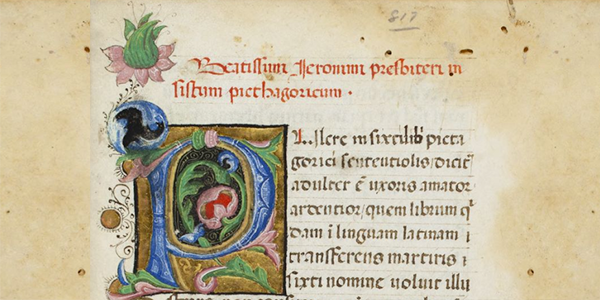 817
Beatissimi Ieronimi presbiteri in
sistum piethagoricum ·
in sixti lib picta
gorici sententiolis, dicit
adulter ē uxoris amator
ardentior, quem librum q
dam i linguam latinam i
transferens martiris i
sixti nomine voluit illu